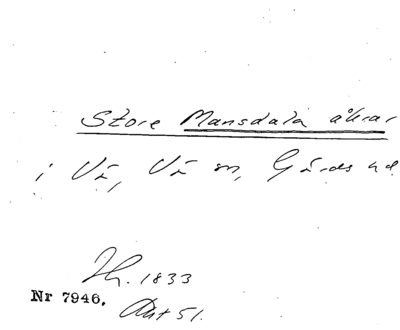 Store Mansdala åkrar
i Vä, Vä sn, Gärds hd
Jh. 1833
Nr 7946.
Akt 51.